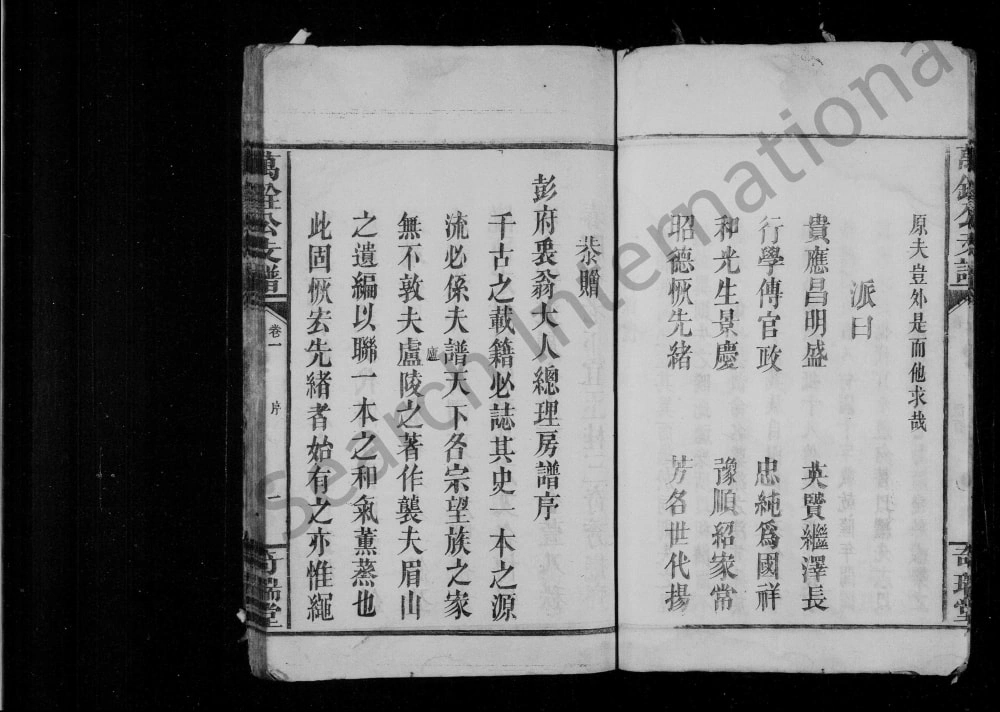 原夫豈外是而他求哉
派曰
貴應昌明盛 英賢繼澤長
行學傳官政 忠純爲國祥
和光生景慶 豫順紹家常
昭德恢先緒 芳名世代揚
奇瑞堂
恭贈
彭府裘翁大人總理房譜序
千古之載籍必誌其史一本之源
流必係夫譜天下各宗望族之家
無不敦夫盧陵之著作襲夫眉山
廬
之遺編以聯一本之和氣薰蒸也
此固恢宏先緒者始有之亦惟繩
萬銓公支譜 卷一 序 一 奇瑞堂
Search International